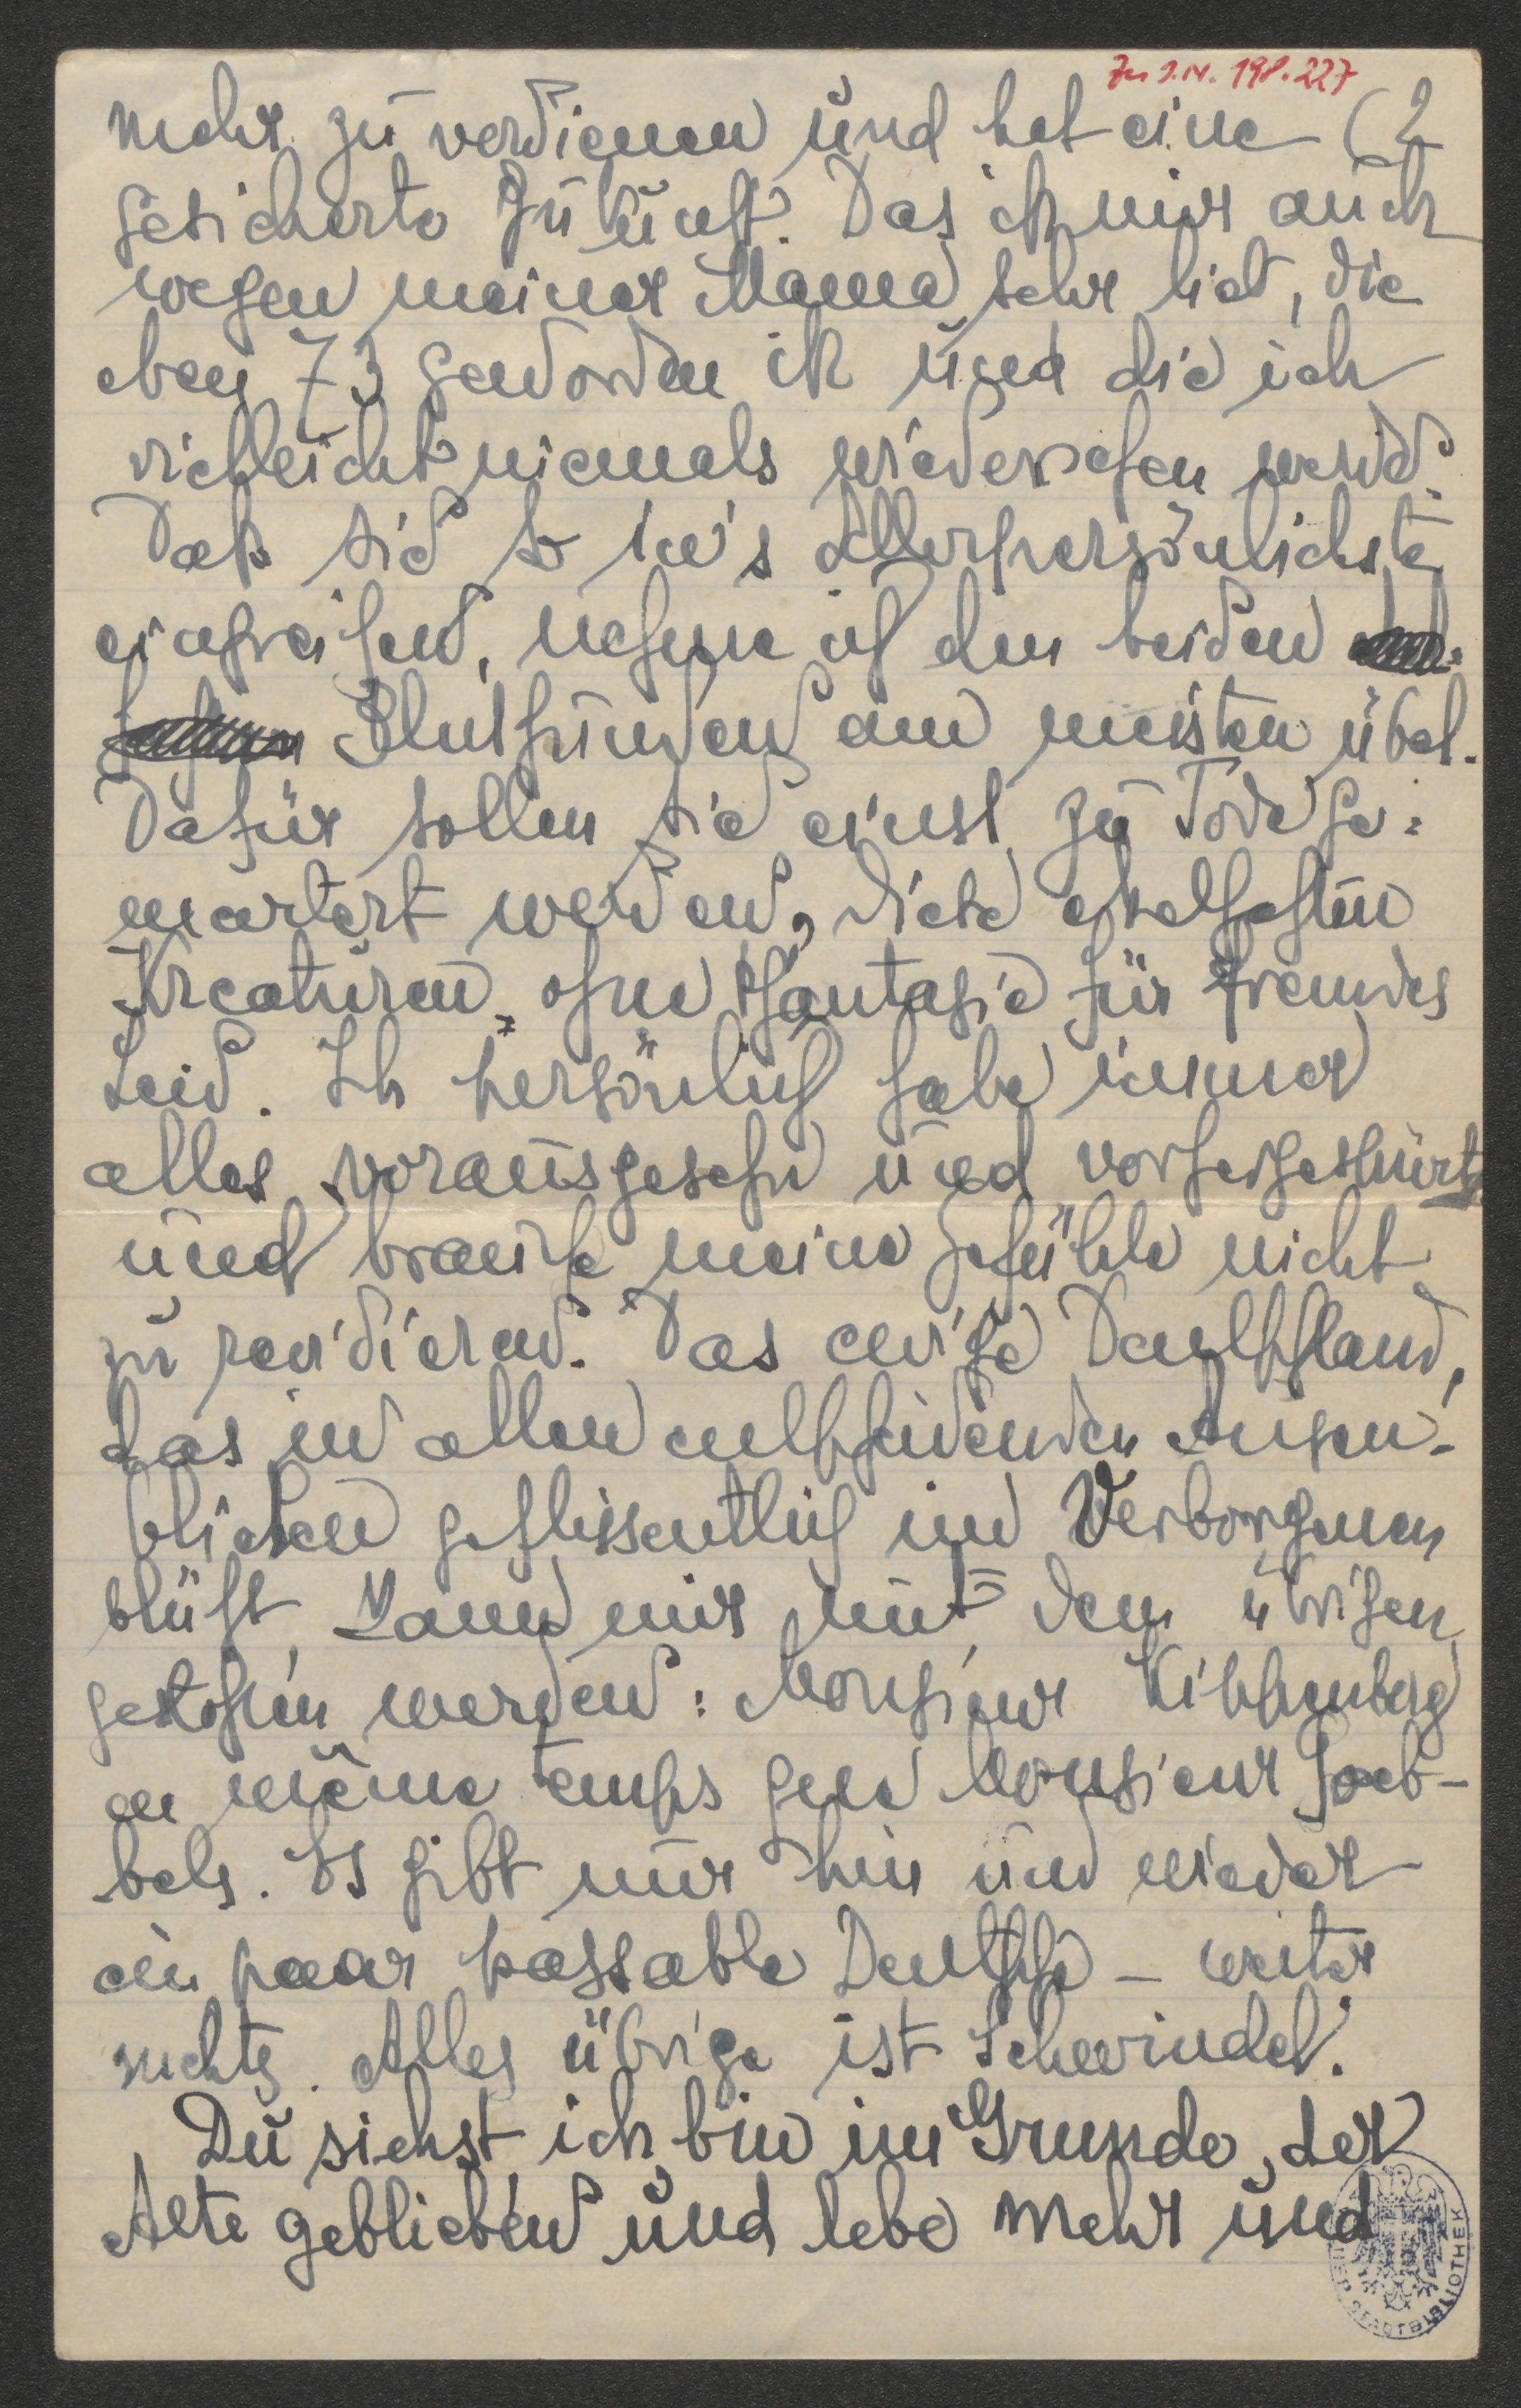 Zu I.N. 198.227
mehr zu verdienen und hat eine (2
gesicherte Zukunft. Das ist mir auch
wegen meiner Mama sehr lieb, die
eben 73 geworden ist und die ich
vielleicht niemals wiedersehen werde.
Daß sie so in's Allerpersönlichste
eingreifen, nehme ich den beiden
Bluthunden am meisten übel.
Dafür sollen sie einst zu Tode ge-
martert werden, diese ekelhaften
Kreaturen, ohne Phantasie für fremdes
Leid. Ich persönlich habe immer
alles vorausgesehn und vorhergespürt
und brauche meine Gefühle nicht
zu revidieren. Das ewige Deutschland,
das in allen entscheidenden Augen-
blicken geflissentlich im Verborgenen
blüht, kann mir mit dem übrigen
gestohlen werden: Monsieur Kippenberg
en même temps que Monsieur Goeb-
bels. Es gibt nur hin und wieder
ein paar passable Deutsche – weiter
nichts. Alles übrige ist Schwindel.
Du siehst ich bin im Grunde, der
Alte geblieben und lebe mehr und